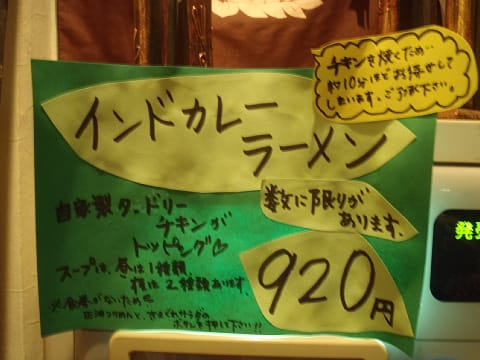 チキンを焼くため…
約10分ほどお待せして
しまいます。ご了承下さい。
インドカレー
ラーメン
数に限りが
あります。
自家製タンドリー
チキンが
トッピング♡
スープは、昼は1種類、
夜は2種類あります。
920円
※食券がないため
正油つけめんと、
ボタンを押して下さい!!